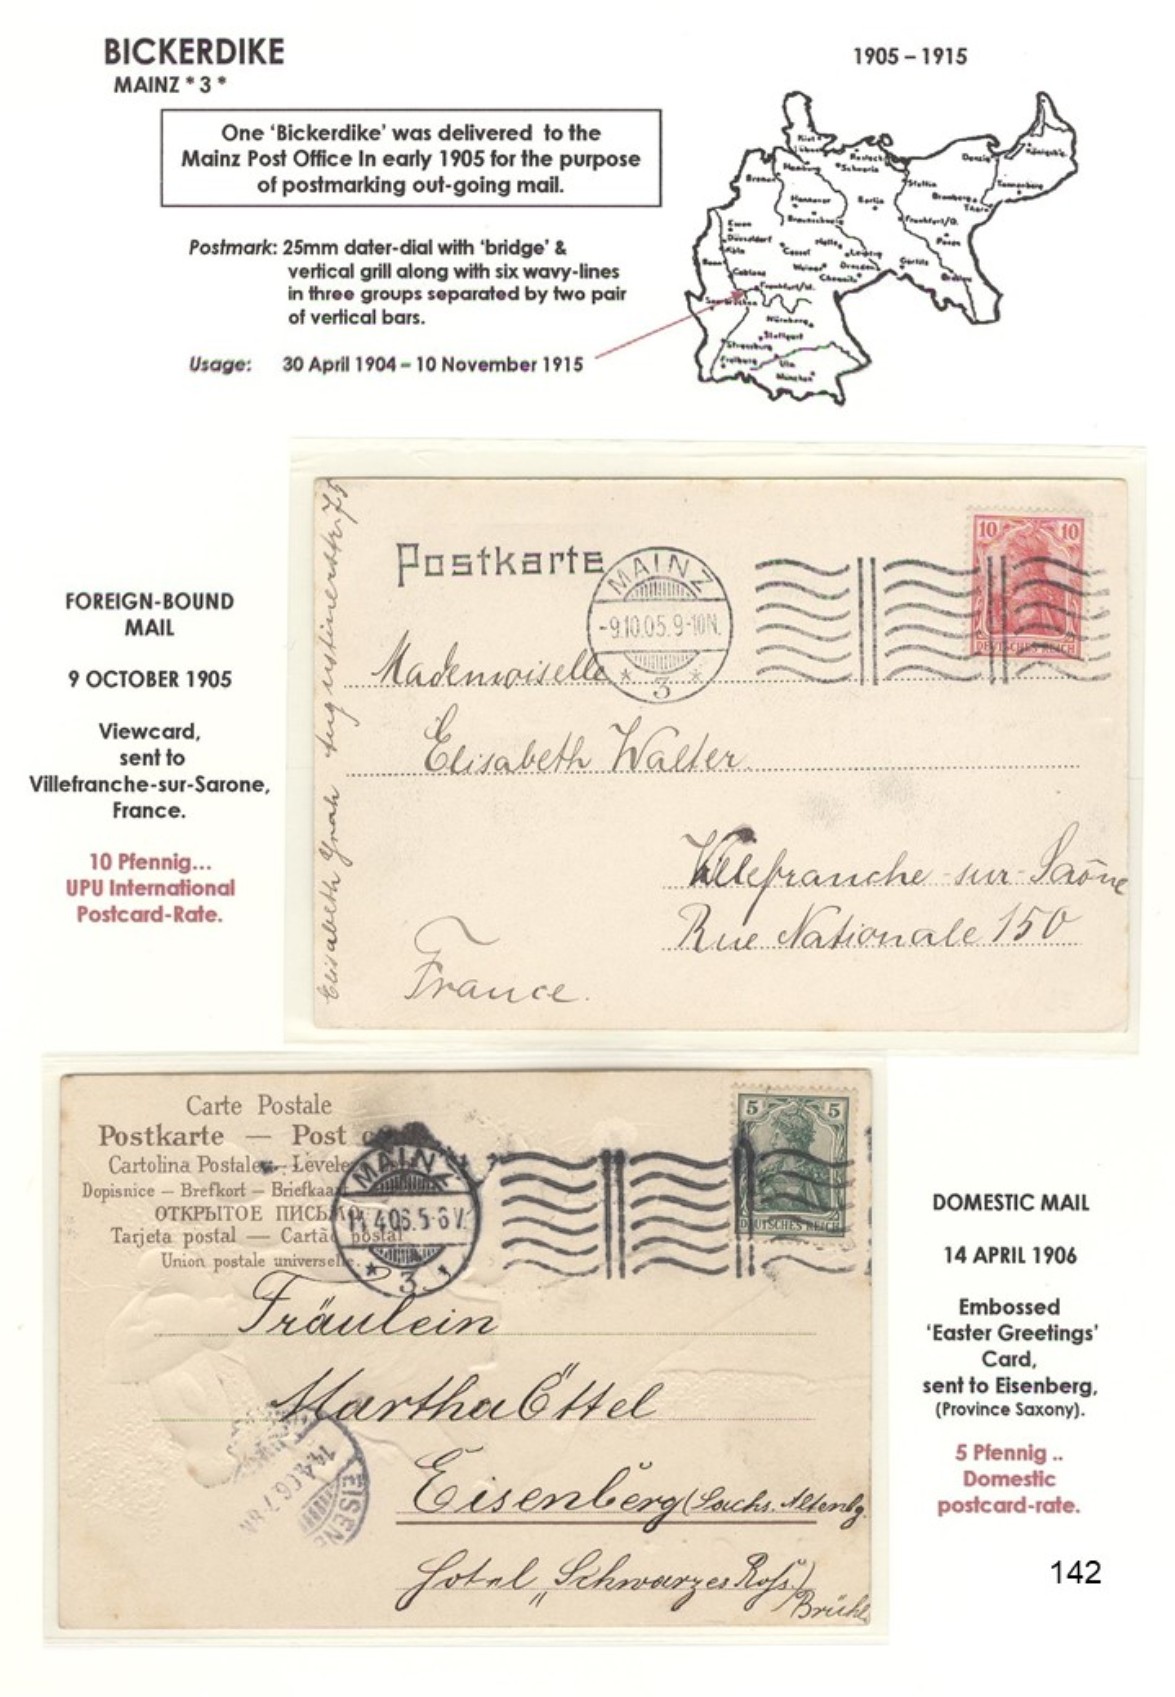 BICKERDIKE
MAINZ * 3 *
1905 – 1915
One ‘Bickerdike’ was delivered to the
Mainz Post Office In early 1905 for the purpose
of postmarking out-going mail.
Postmark: 25mm dater-dial with ‘bridge’ &
vertical grill along with six wavy-lines
in three groups separated by two pair
of vertical bars.
Usage: 30 April 1904 – 10 November 1915
Kiel
Lübeck
Hamburg
Rostock
Schwerin
Bremen
Stettin
Danzig
Königsbg.
Tannenberg
Bromberg
Thorn
Hannover
Berlin
Braunschweig
Frankfurt/O.
Posen
Essen
Düsseldorf
Köln
Cassel
Halle
Leipzig
Bonn
Weimar
Dresden
Görlitz
Chemnitz
Breslau
Coblenz
Frankfurt/M.
Saarbrücken
Nürnberg
Stuttgart
Strassburg
Freiburg
Ulm
München
FOREIGN-BOUND
MAIL
9 OCTOBER 1905
Viewcard,
sent to
Villefranche-sur-Sarone,
France.
10 Pfennig...
UPU International
Postcard-Rate.
Postkarte
MAINZ
-9.10.05.9-10N.
* 3 *
10 10
DEUTSCHES REICH
Mademoiselle
Elisabeth Walter
Villefranche-sur-Saône
Rue Nationale 150
France.
Elisabeth Augustinerstr. 75
Carte Postale
Postkarte — Post
Cartolina Postale — Levele
Dopisnice — Brefkort — Briefkaar
ОТКРЫТОЕ ПИСЬМО
Tarjeta postal — Cartão postal
Union postale universelle.
MAINZ
14.4.06.5-6V.
* 3 *
5 5
DEUTSCHES REICH
Fräulein
Martha Öttel
Eisenberg (Sachs. Altenbg.
Hotel „Schwarzes Ross“)
Brühl
EISENB
14.4.06.7-8N
DOMESTIC MAIL
14 APRIL 1906
Embossed
‘Easter Greetings’
Card,
sent to Eisenberg,
(Province Saxony).
5 Pfennig ..
Domestic
postcard-rate.
142